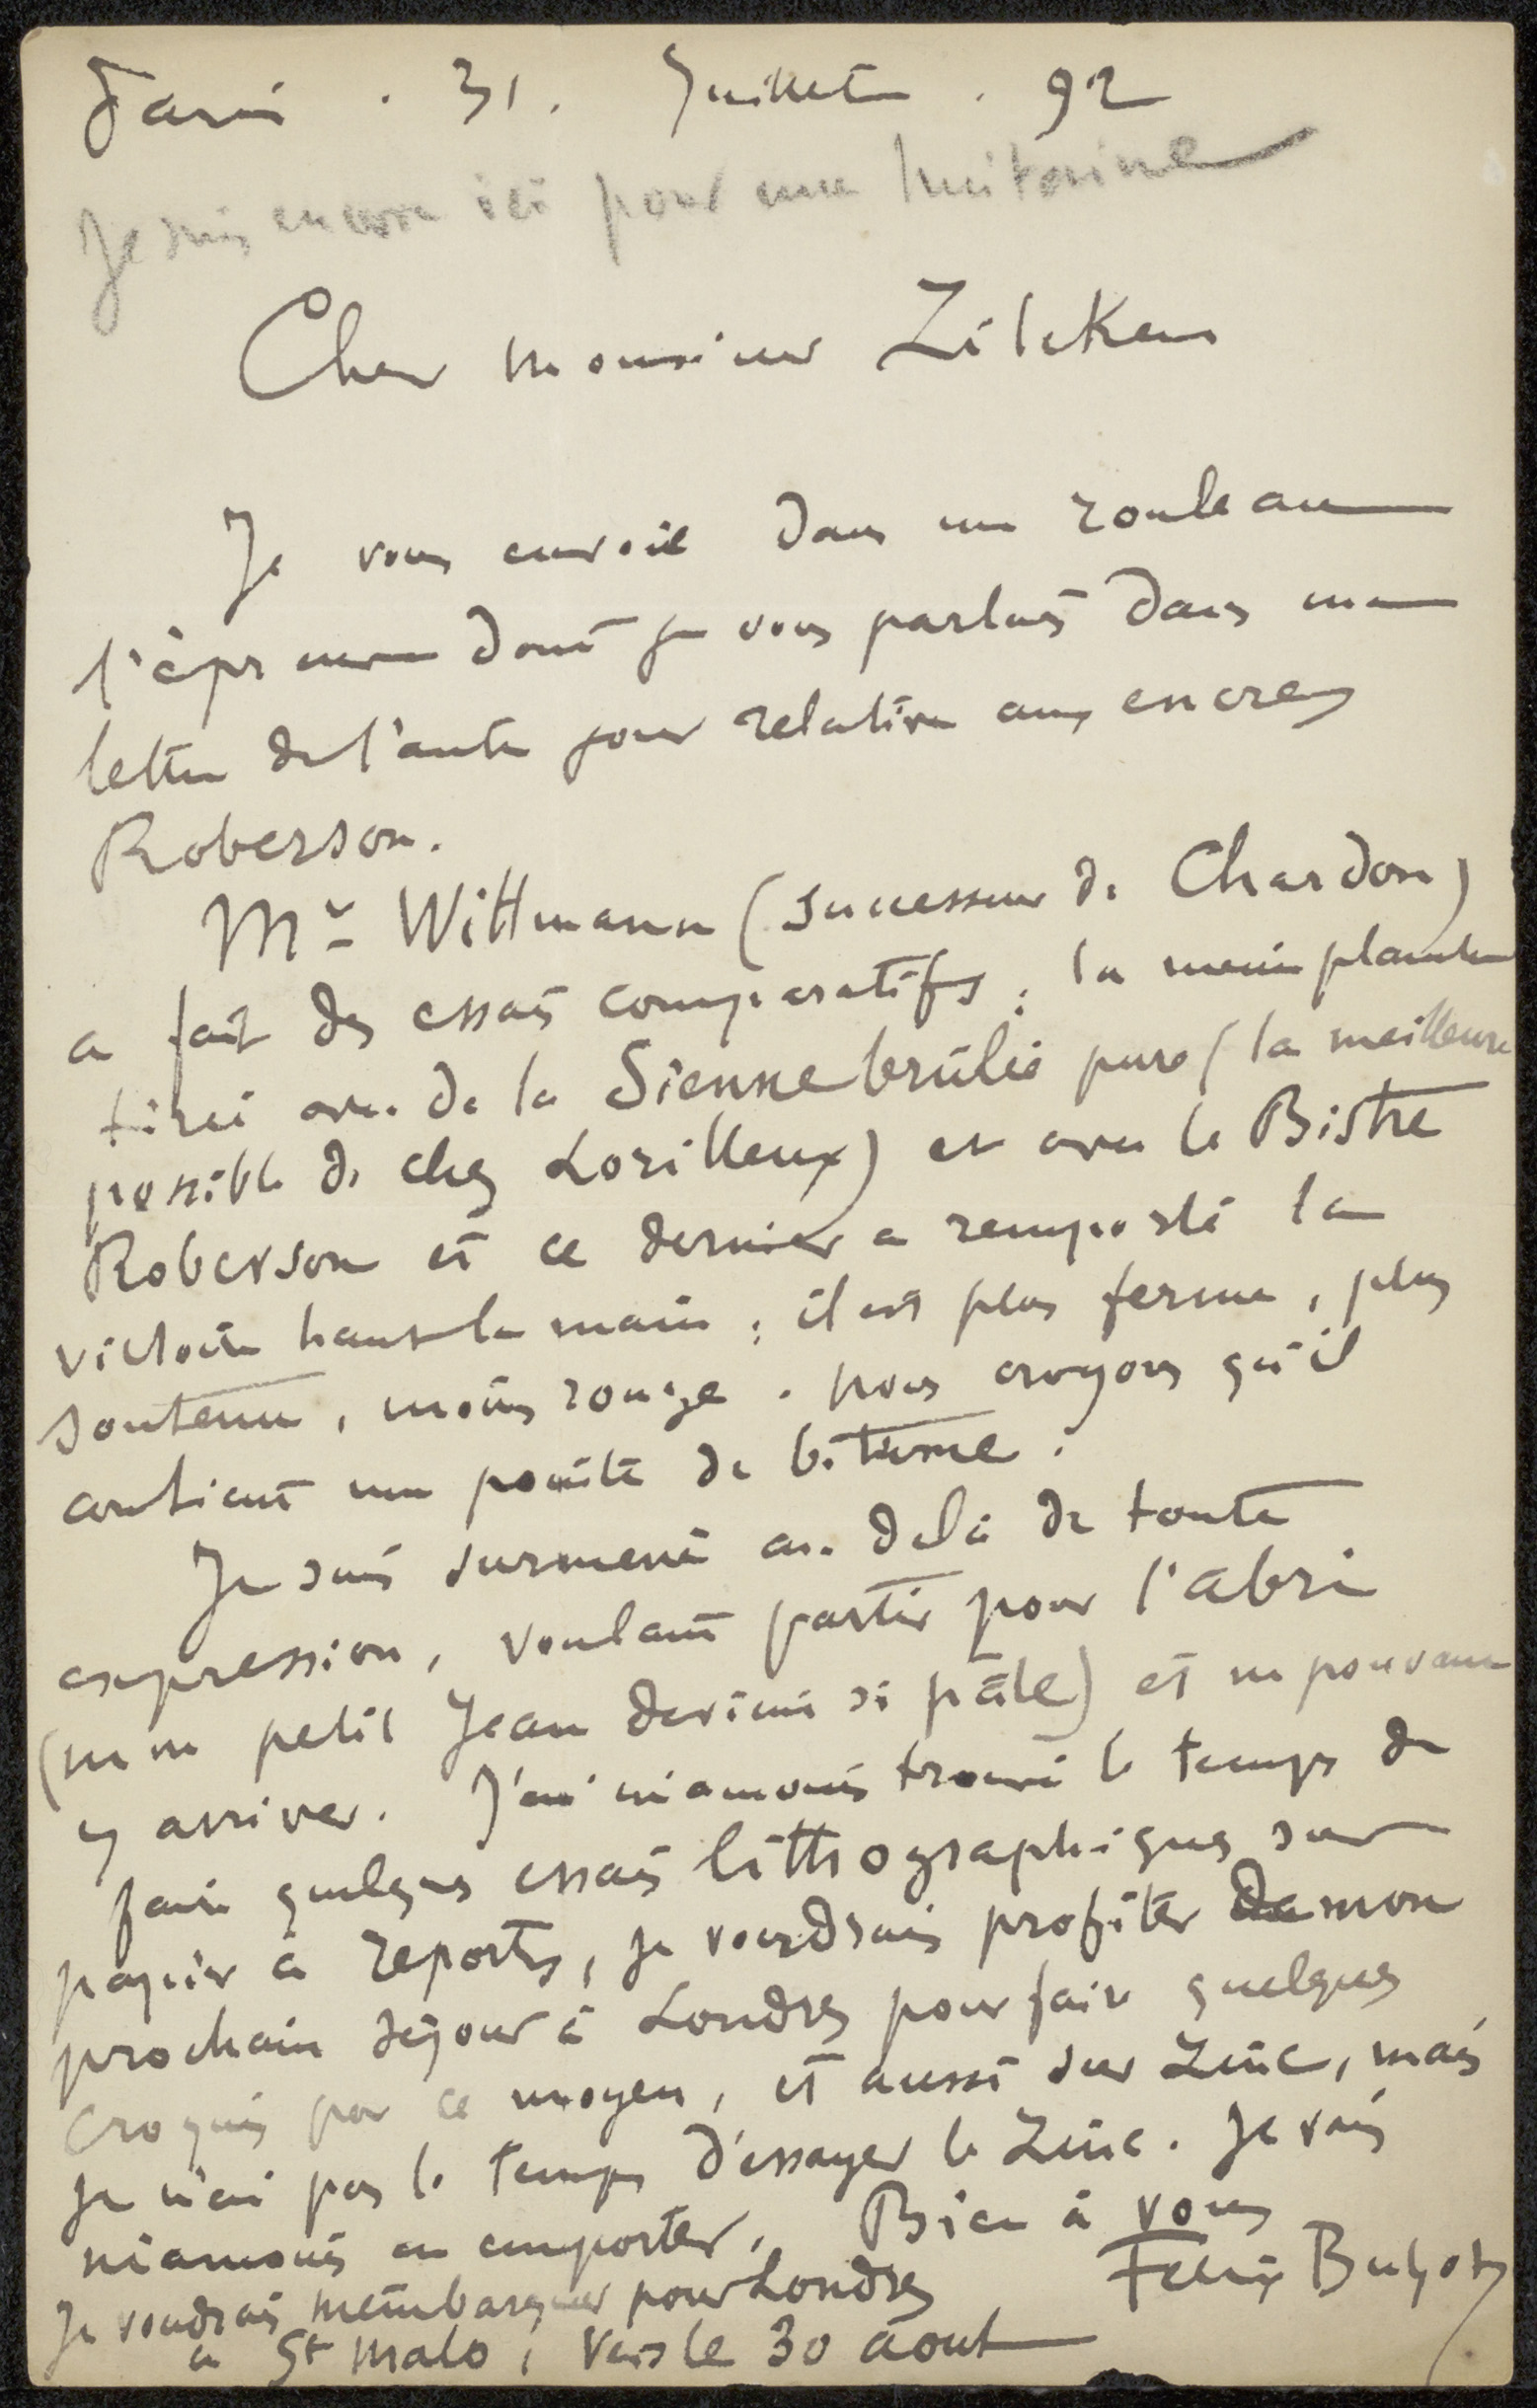 Paris . 31. Juillet . 92
Je suis encore ici pour une huitaine
Cher Monsieur Zilcken
Je vous envoie dans un rouleau
l'épreuve dont je vous parlais dans une
lettre de l'autre jour relative aux encres
Roberson.
Mr Wittmann (successeur de Chardon)
a fait des essais comparatifs ; la même planche
tirée avec de la Sienne brûlée pure (la meilleure
possible de chez Lorilleux) et avec le Bistre
Roberson et ce dernier a remporté la
victoire haut la main ; il est plus ferme, plus
soutenu, moins rouge . nous croyons qu'il
contient une pointe de bitume .
Je suis surmené au delà de toute
expression, voulant partir pour l'abri
(mon petit Jean devient si pâle) et ne pouvant
y arriver. J'ai néanmoins trouvé le temps de
faire quelques essais lithographiques sur
papier à reports, je voudrais profiter de mon
prochain séjour à Londres pour faire quelques
croquis par ce moyen, et aussi sur Zinc, mais
je n'ai pas le temps d'essayer le Zinc. Je vais
néanmoins en emporter. Bien à vous
Félix Buhot
Je voudrais m'embarquer pour Londres
à St Malo, vers le 30 août